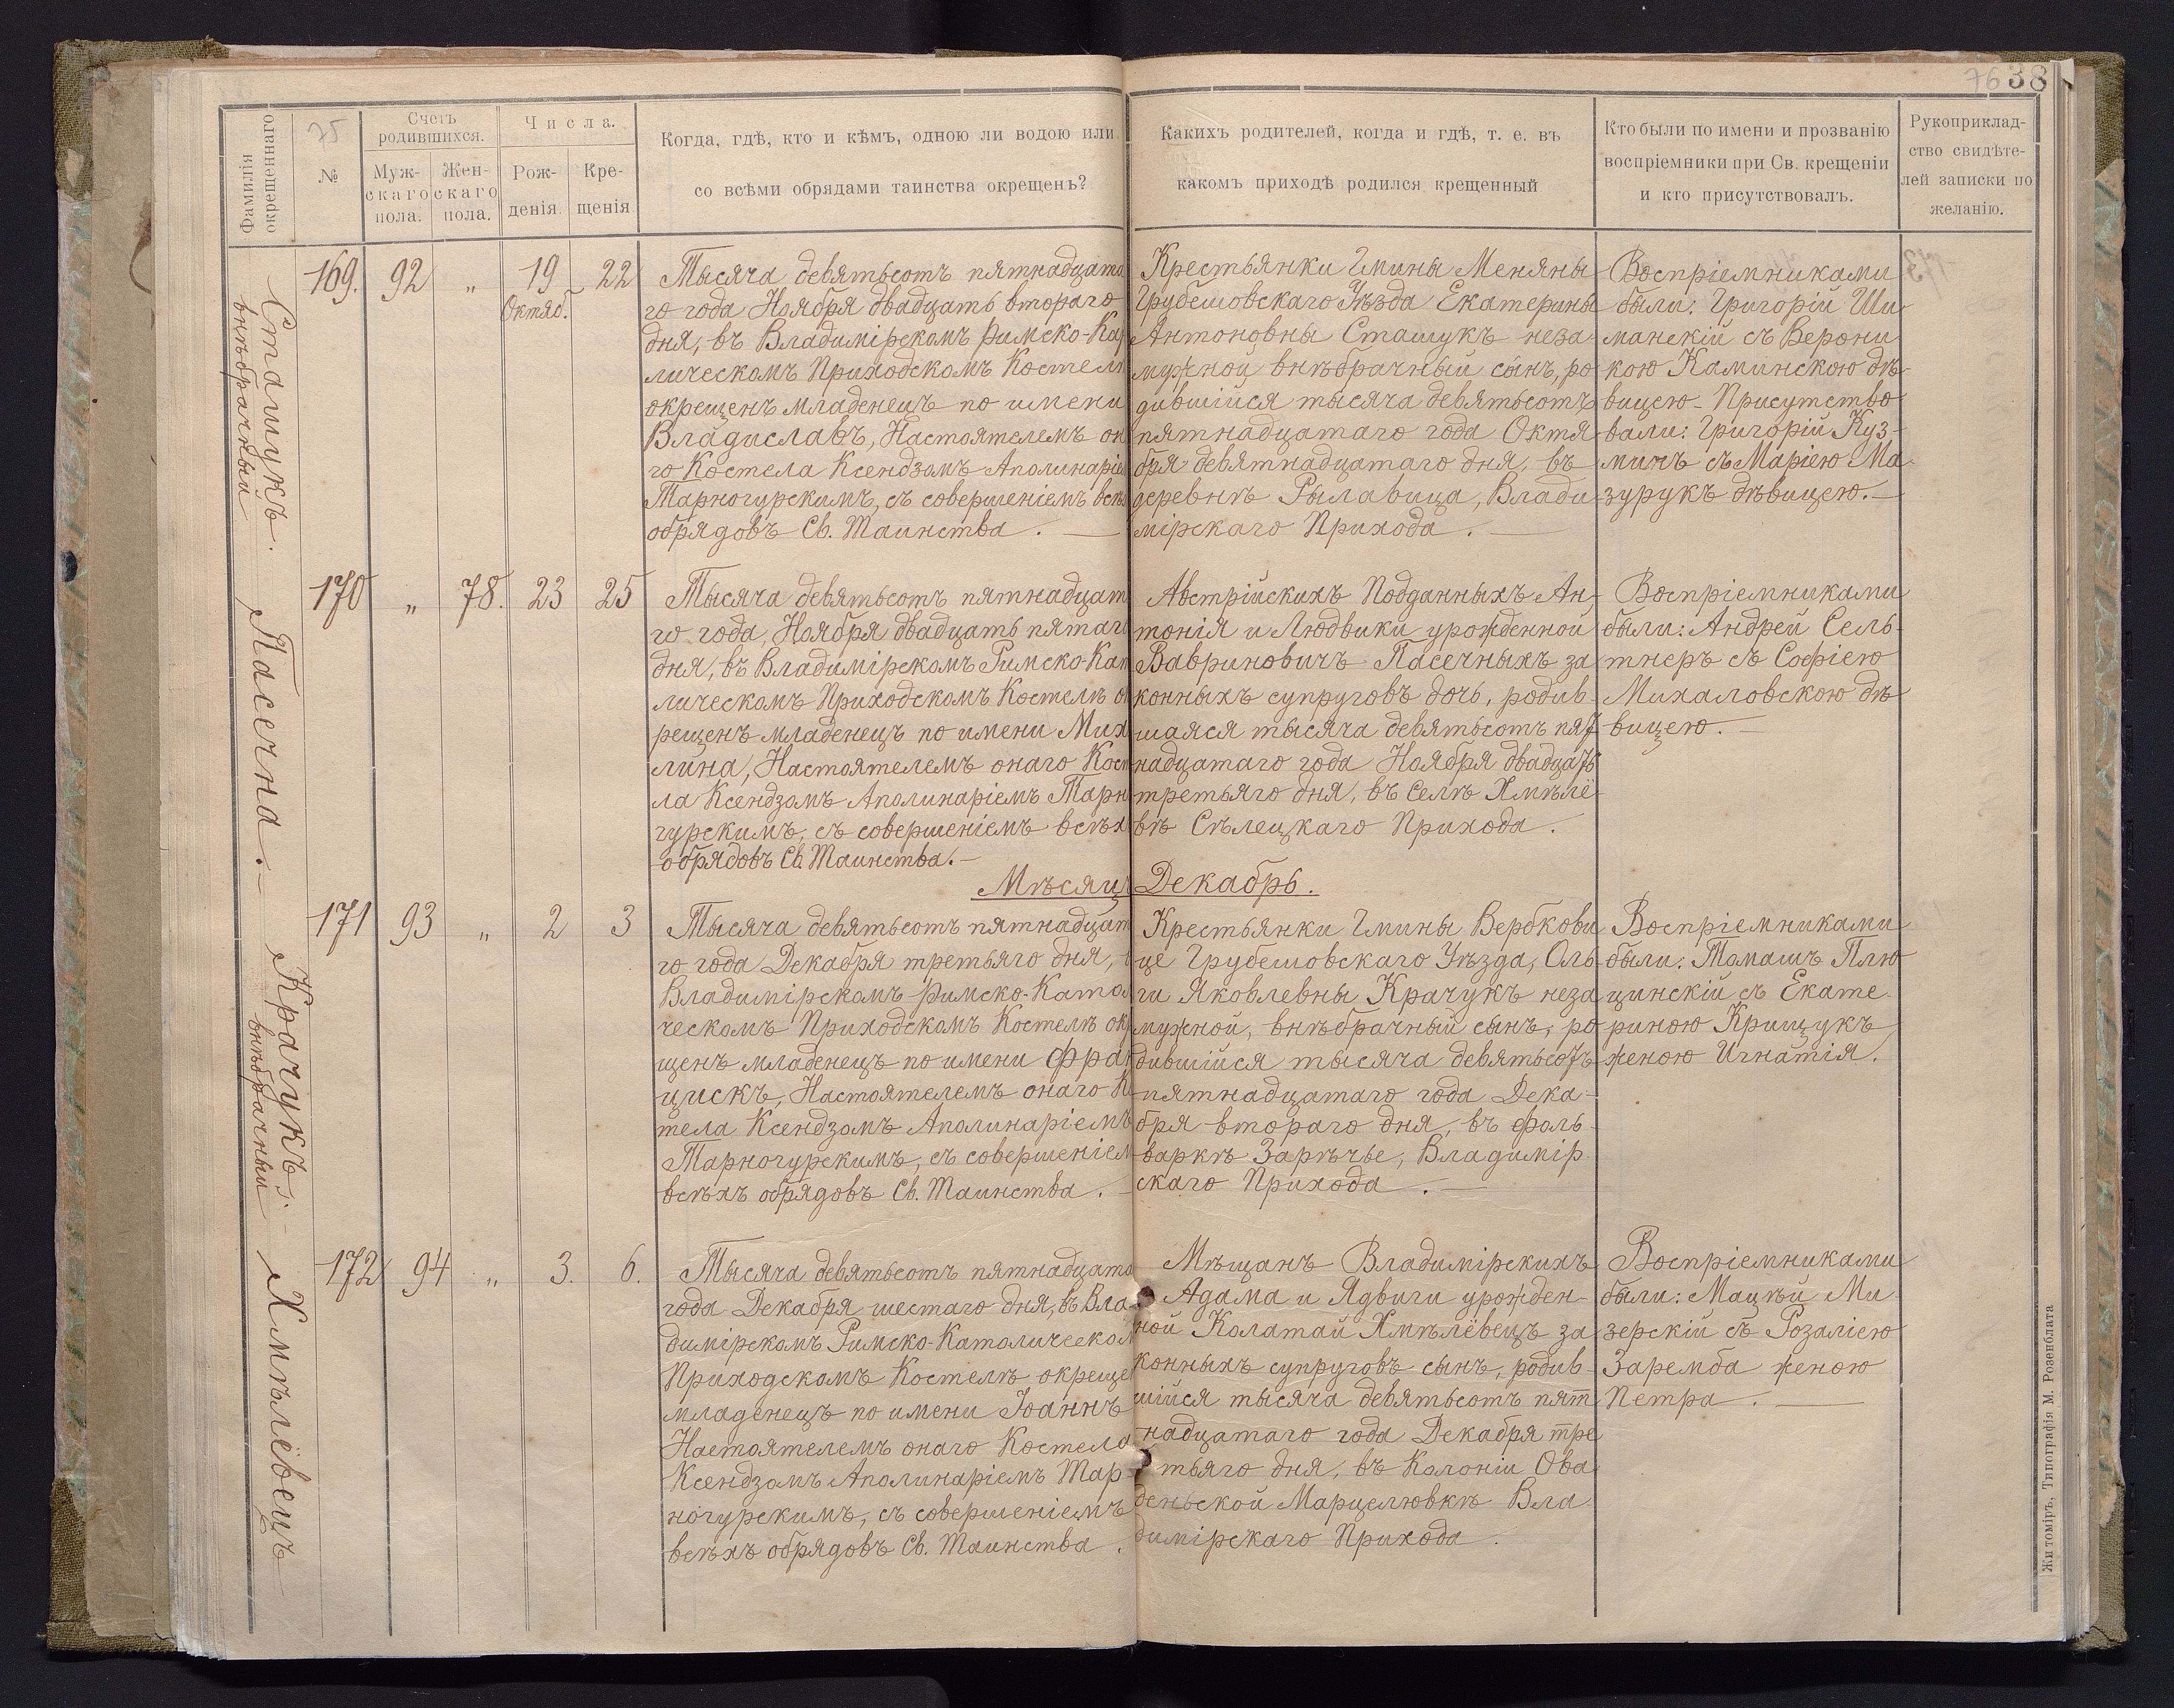 76 38
Фамилія окрещеннаго
75
№
Счетъ родившихся.
Муж-
скаго
пола.
Жен-
скаго
пола.
Числа.
Рож-
денія.
Кре-
щенія
Когда, гдѣ, кто и кѣмъ, одною ли водою или
со всѣми обрядами таинства окрещенъ?
Какихъ родителей, когда и гдѣ, т. е. въ
какомъ приходѣ родился крещенный
Кто были по имени и прозванію
воспріемники при Св. крещеніи
и кто присутствовалъ.
Рукоприклад-
ство свидѣте-
лей записки по
желанію.
Сташукъ.
внѣбрачный
169. 92 „ 19 22
Октяб.
Тысяча девятьсотъ пятнадцата
го года Ноября двадцать втораго
дня, въ Владимірскомъ Римско-Ка
лическомъ Приходскомъ Костелѣ
окрещенъ младенецъ по имени
Владиславъ, Настоятелемъ он
го Костела Ксендзомъ Аполинаріе
Тарногурскимъ, съ совершеніемъ всѣ
обрядовъ Св. Таинства. —
Крестьянки Гмины Меняны
Грубешовскаго Уѣзда Екатерины
Антоновны Сташукъ неза-
мужной внѣбрачный сынъ, ро
дившійся тысяча девятьсотъ
пятнадцатаго года Октя
бря девятнадцатаго дня, въ
деревнѣ Рылавица, Влади
мірскаго Прихода. —
Воспріемниками
были: Григорій Ши
манскій съ Верони
кою Каминскою дѣ-
вицею. Присутство
вали: Григорій Куз-
минъ съ Маріею Ма-
зурукъ дѣвицею. —
Пасечна. —
170 „ 78. 23 25
Тысяча девятьсотъ пятнадцат
го года, Ноября двадцать пятаго
дня, въ Владимірскомъ Римско-Кат
лическомъ Приходскомъ Костелѣ о
рещенъ младенецъ по имени Мих
лина, Настоятелемъ онаго Кост
ла Ксендзомъ Аполинаріемъ Тарн
гурскимъ, съ совершеніемъ всѣх
обрядовъ Св. Таинства. —
Австрійскихъ Подданныхъ Ан-
тонія и Людвики урожденной
Вавриновичъ Пасечныхъ за
конныхъ супруговъ дочь, родив-
шаяся тысяча девятьсотъ пят
надцатаго года Ноября двадцать
третьяго дня, въ селѣ Хмѣлё-
вѣ Сѣлецкаго Прихода.
Воспріемниками
были: Андрей Сель-
тнеръ съ Софіею
Михаловскою дѣ
вицею. —
Мѣсяцъ Декабрь.
Крачукъ. —
внѣбрачный
171 93 „ 2 3
Тысяча девятьсотъ пятнадцат
го года Декабря третьяго дня,
Владимірскомъ Римско-Като
ческомъ Приходскомъ Костелѣ ок
щенъ младенецъ по имени Фран
цискъ, Настоятелемъ онаго К
тела Ксендзомъ Аполинаріемъ
Тарногурскимъ, съ совершеніем
всѣхъ обрядовъ Св. Таинства. —
Крестьянки Гмины Вербкови
це Грубешовскаго Уѣзда, Оль-
ги Яковлевны Крачукъ неза
мужной, внѣбрачный сынъ, ро
дившійся тысяча девятьсотъ
пятнадцатаго года Дека-
бря втораго дня, въ фоль-
варкѣ Зарѣчье, Владимір-
скаго Прихода. —
Воспріемниками
были: Томашъ Плю
цинскій съ Екате-
риною Крищукъ
женою Игнатія.
Хмѣлёвецъ
172 94 „ 3. 6.
Тысяча девятьсотъ пятнадцата
года Декабря шестаго дня, въ Вла-
димірскомъ Римско-Католическом
Приходскомъ Костелѣ окреще
младенецъ по имени Іоаннъ
Настоятелемъ онаго Костела
Ксендзомъ Аполинаріемъ Тар-
ногурскимъ, съ совершеніемъ
всѣхъ обрядовъ Св. Таинства.
Мѣщанъ Владимірскихъ
Адама и Ядвиги урожден-
ной Колатай Хмѣлёвецъ за
конныхъ супруговъ сынъ, родив-
шійся тысяча девятьсотъ пят
надцатаго года Декабря тре
тьяго дня, въ Колоніи Ова
деньской Марцелювкѣ Вла-
димірскаго Прихода.
Воспріемниками
были: Мацѣй Ми-
зерскій съ Розаліею
Заремба женою
Петра. —
Житоміръ, Типографія М. Розенблата